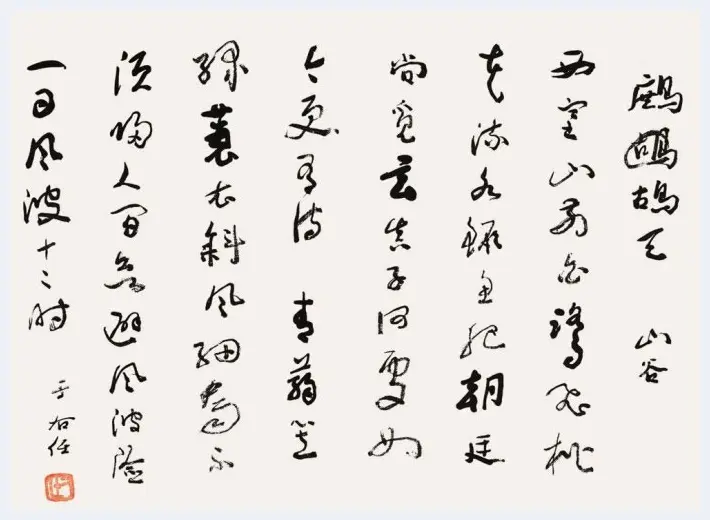 鷓鴣天 山谷
西塞山前白鷺飛桃
花流水鱖魚肥朝廷
尚覓玄真子何處如
今更有詩 青蒻笠
綠蓑衣斜風細雨不
須歸人間避風波險
一日風波十二時
于右任